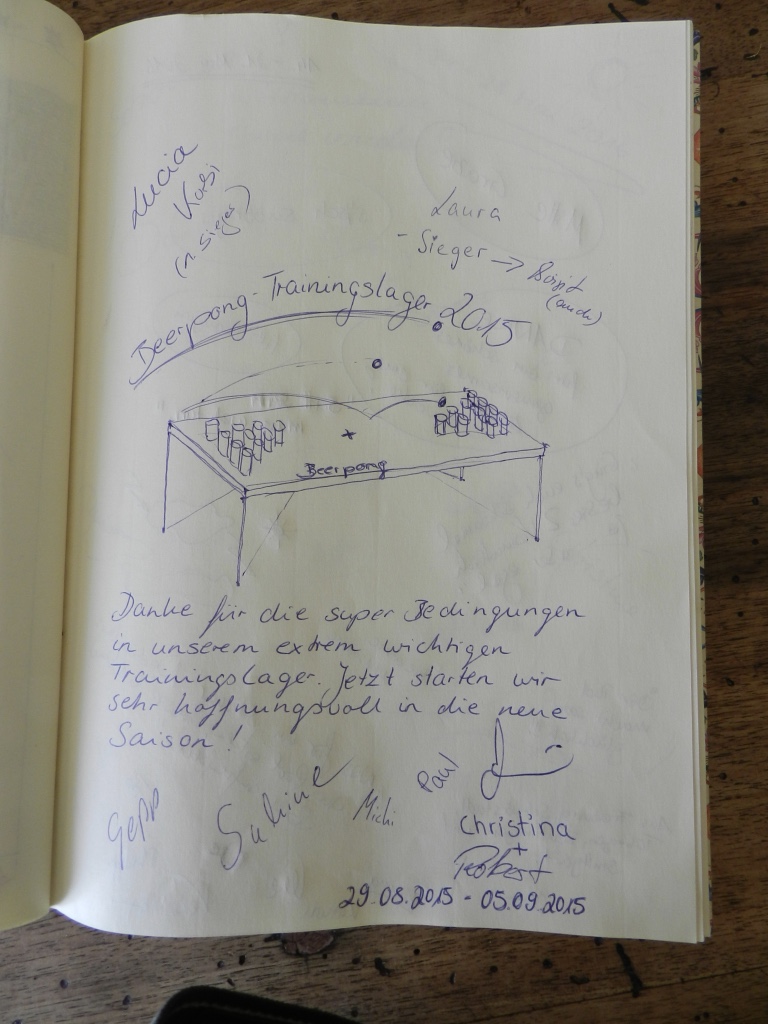 Lucia
Kasi
(n. Sieger)
Laura
- Sieger → Birgit
(auch)
Beerpong-Trainingslager 2015
Beerpong
Danke für die super Bedingungen
in unserem extrem wichtigen
Trainingslager. Jetzt starten wir
sehr hoffnungsvoll in die neue
Saison!
Gepp
Sabine
Michi
Paul
Christina
+
Robert
29.08.2015 - 05.09.2015